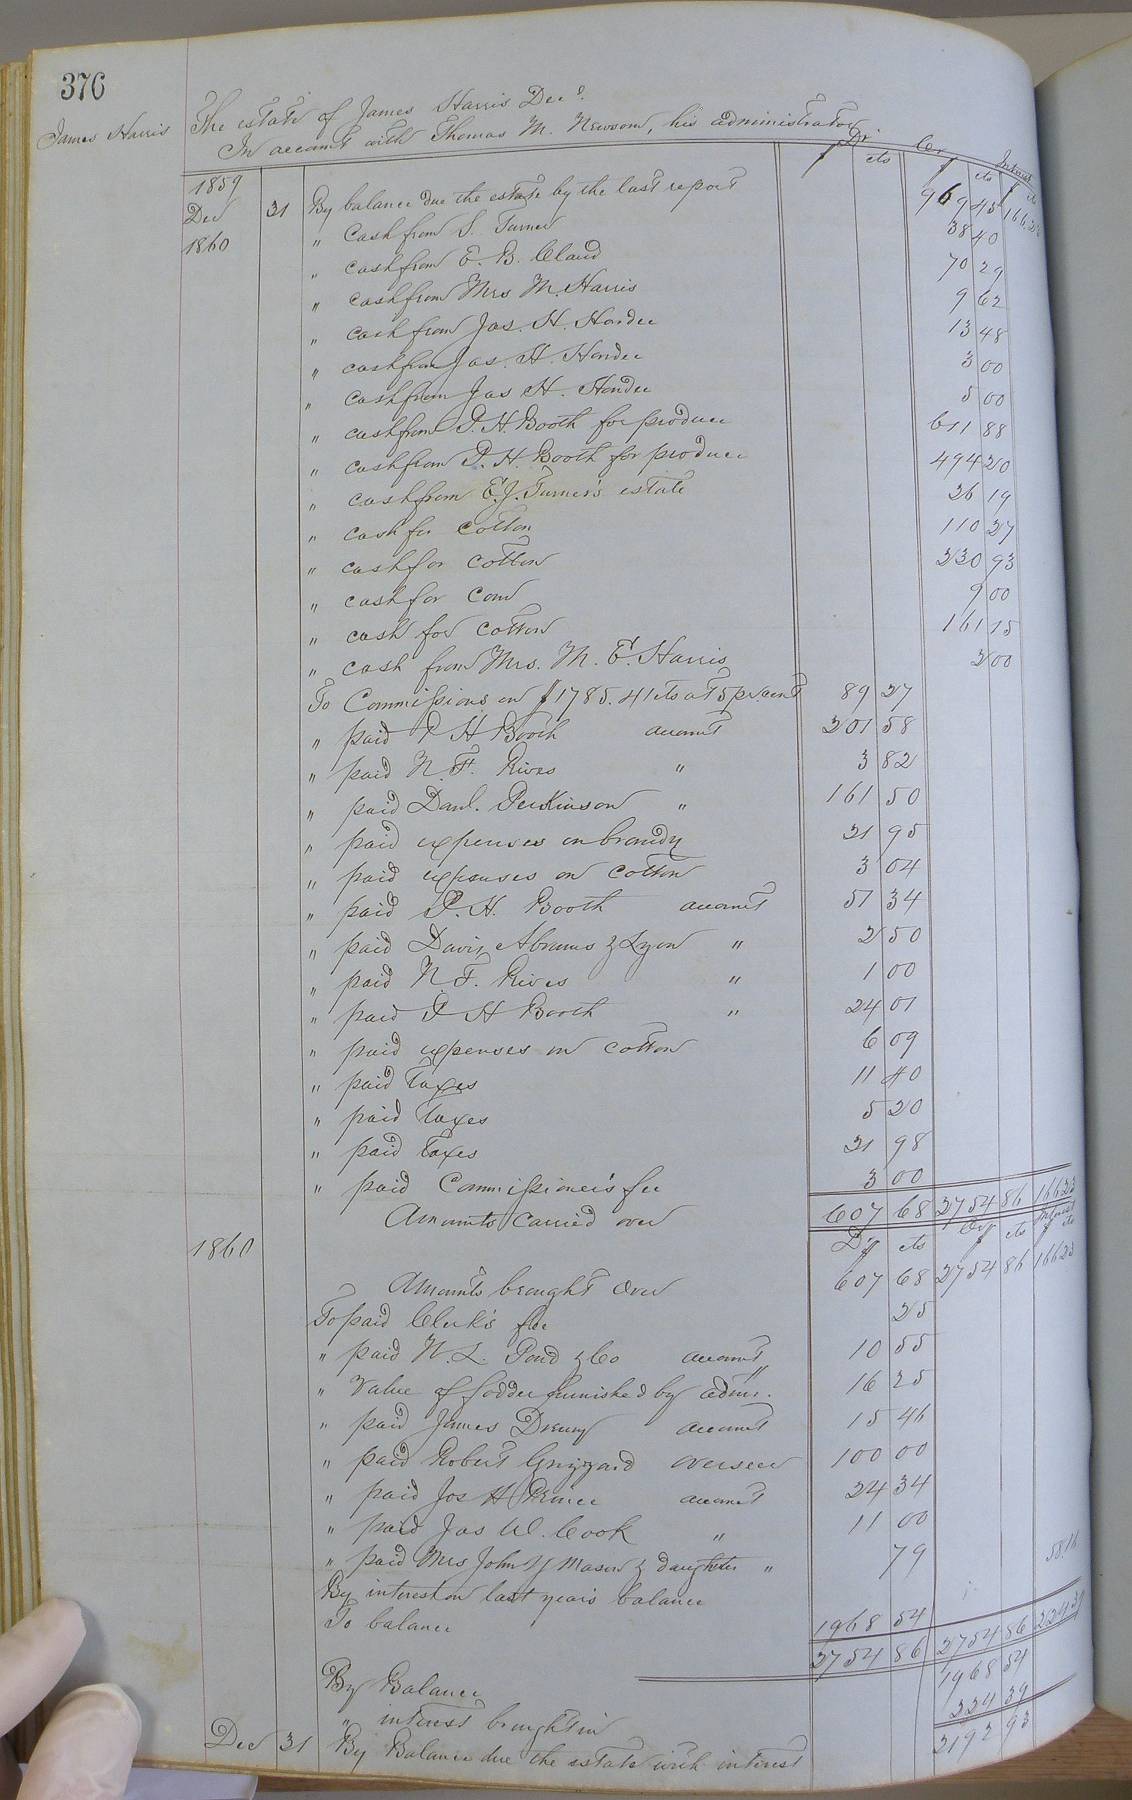 376
James Harris
The estate of James Harris Decd.
In account with Thomas M. Newsom, his administrator
Dr. Cr Interest
$ cts $ cts $ cts
1859
Dec 31 By balance due the estate by the last report 969 45 166 23
1860 " Cash from S. Turner 38 40
" cash from E. B. Claud 70 29
" cash from Mrs M. Harris 9 62
" cash from Jas. H. Hardee 13 48
" cash from Jas. H. Hardee 3 00
" cash from Jas H. Hardee 5 00
" cash from P. H. Booth for produce 611 88
" cash from P. H. Booth for produce 494 20
" cash from E. J. Turner's estate 26 19
" cash for cotton 110 27
" cash for cotton 230 93
" cash for corn 9 00
" cash for cotton 161 15
" cash from Mrs. M. E. Harris 2 00
To Commissions on $1785.41 cts at 5 pr. cent 89 27
" paid P H Booth account 201 58
" paid N. F. Rives " 3 82
" paid Danl. Perkinson " 161 50
" paid expenses on brandy 21 95
" paid expenses on cotton 3 04
" paid P. H. Booth account 51 34
" paid Davis, Abrams & Lyon " 2 50
" paid N F. Rives " 1 00
" paid P H Booth " 24 01
" paid expenses on cotton 6 09
" paid Taxes 11 40
" paid Taxes 5 20
" paid Taxes 21 98
" paid Commissioner's fee 3 00
Amounts Carried over 607 68 2754 86 166 23
1860 Dr Cr Interest
$ cts $ cts $ cts
Amounts brought Over 607 68 2754 86 166 23
To paid Clerk's fee 25
" paid N. L. Pond & Co account 10 55
" Value of fodder furnished by admr. " 16 25
" paid James Drewry account 15 46
" paid Robert Grizzard overseer 100 00
" paid Jos H Prince account 24 34
" paid Jas W. Cook " 11 00
" paid Mrs John Y Mason & daughter " 79
By interest on last year's balance 58.16
To balance 1968 54
2754 86 2754 86 224 39
By Balance 1968 54
" interest brought in 224 39
Dec 31 By Balance due the estate with interest 2192 93